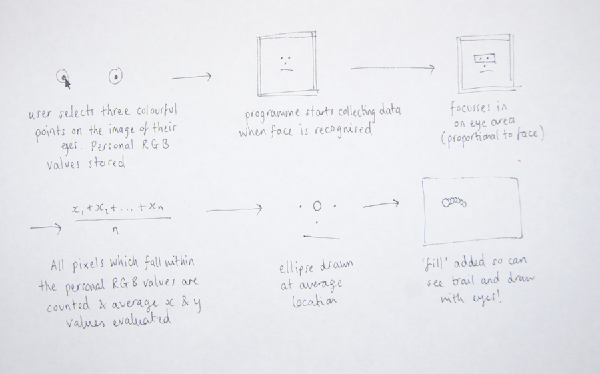 user selects three colourful
points on the image of their
eyes. Personal RGB
values stored
programme starts collecting data
when face is recognised
focusses in
on eye area
(proportional to face)
x₁+x₂+...+xn
n
All pixels which fall within
the personal RGB values are
counted & average x & y
values evaluated
ellipse drawn
at average
location
'fill' added so can
see trail and draw
with eyes!